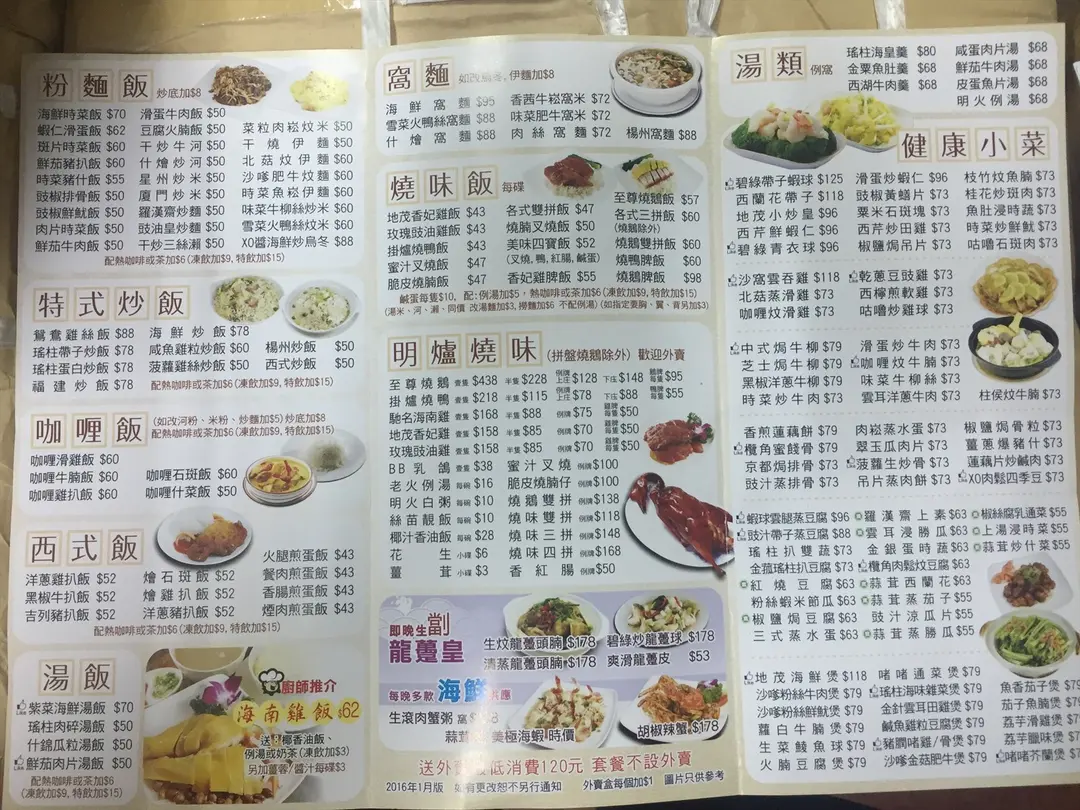 粉麵飯 炒底加$8
海鮮時菜飯 $70 滑蛋牛肉飯 $50
蝦仁滑蛋飯 $62 豆腐火腩飯 $50 菜粒肉崧炆米 $50
斑片時菜飯 $60 干炒牛河 $50 干燒伊麵 $50
鮮茄豬扒飯 $60 什燴炒河 $50 北菇炆伊麵 $60
時菜豬什飯 $55 星州炒米 $50 沙嗲肥牛炆麵 $60
豉椒排骨飯 $50 廈門炒米 $50 時菜魚崧伊麵 $60
豉椒鮮魷飯 $50 羅漢齋炒麵 $50 味菜牛柳絲炆米 $60
肉片時菜飯 $50 豉油皇炒麵 $50 雪菜火鴨絲炆米 $60
鮮茄牛肉飯 $50 干炒三絲瀨 $50 XO醬海鮮炒烏冬 $88
配熱咖啡或茶加$6 (凍飲加$9, 特飲加$15)
特式炒飯
鴛鴦雞絲飯 $88 海鮮炒飯 $78
瑤柱帶子炒飯 $78 咸魚雞粒炒飯 $60 楊州炒飯 $50
瑤柱蛋白炒飯 $78 菠蘿雞絲炒飯 $50 西式炒飯 $50
福建炒飯 $78 配熱咖啡或茶加$6 (凍飲加$9, 特飲加$15)
咖喱飯 (如改河粉、米粉、炒麵加$5) 炒底加$8
配熱咖啡或茶加$6 (凍飲加$9, 特飲加$15)
咖喱滑雞飯 $60
咖喱牛腩飯 $60 咖喱石斑飯 $60
咖喱雞扒飯 $60 咖喱什菜飯 $50
西式飯
火腿煎蛋飯 $43
洋蔥雞扒飯 $52 燴石斑飯 $52 餐肉煎蛋飯 $43
黑椒牛扒飯 $52 燴雞扒飯 $52 香腸煎蛋飯 $43
吉列豬扒飯 $52 洋蔥豬扒飯 $52 煙肉煎蛋飯 $43
配熱咖啡或茶加$6 (凍飲加$9, 特飲加$15)
湯飯
紫菜海鮮湯飯 $70
瑤柱肉碎湯飯 $50
什錦瓜粒湯飯 $50
鮮茄肉片湯飯 $50
配熱咖啡或茶加$6
(凍飲加$9, 特飲加$15)
廚師推介
海南雞飯 $62
送:椰香油飯、
例湯或奶茶 (凍飲加$3)
另加薑蓉/醬汁每碟$3
窩麵 伊麵加$8
海鮮窩麵 $95 香茜牛崧窩米 $72
雪菜火鴨絲窩麵 $88 味菜肥牛窩米 $72
什燴窩麵 $88 肉絲窩麵 $72 楊州窩麵 $88
燒味飯 每碟
至尊燒鵝飯 $57
地茂香妃雞飯 $43 各式雙拼飯 $47 各式三拼飯 $60
玫瑰豉油雞飯 $43 燒腩叉燒飯 $50 (燒鵝除外)
掛爐燒鴨飯 $43 美味四寶飯 $52 燒鵝雙拼飯 $60
蜜汁叉燒飯 $47 (叉燒, 鴨, 紅腸, 鹹蛋) 燒鴨脾飯 $60
脆皮燒腩飯 $47 香妃雞脾飯 $55 燒鵝脾飯 $98
鹹蛋每隻$10, 配:例湯加$5,熱咖啡或茶加$6 (凍飲加$9, 特飲加$15)
(湯米、河、瀨、同價 改湯麵加$3, 撈麵加$6 不配例湯) (如指定要胸、翼、背另加$3)
明爐燒味 (拼盤燒鵝除外) 歡迎外賣
至尊燒鵝 壹隻 $438 半隻 $228 例牌上庄 $128 下庄 $148 鵝脾每隻 $95
掛爐燒鴨 壹隻 $218 半隻 $115 例牌上庄 $78 下庄 $88 鴨脾每隻 $55
馳名海南雞 壹隻 $168 半隻 $88 例牌 $75 雞脾每隻 $50
地茂香妃雞 壹隻 $158 半隻 $85 例牌 $70 雞脾每隻 $50
玫瑰豉油雞 壹隻 $158 半隻 $85 例牌 $70 雞脾每隻 $50
BB乳鴿 壹隻 $38 蜜汁叉燒 例牌 $100
老火例湯 每碗 $16 脆皮燒腩仔 例牌 $100
明火白粥 每碗 $10 燒鵝雙拼 例牌 $138
絲苗靚飯 每碗 $10 燒味雙拼 例牌 $118
椰汁香油飯 每碗 $28 燒味三拼 例牌 $148
花生 小碟 $6 燒味四拼 例牌 $168
薑茸 小碟 $3 香紅腸 例牌 $50
即晚生劏
龍躉皇
生炆龍躉頭腩 $178 碧綠炒龍躉球 $178
清蒸龍躉頭腩 $178 爽滑龍躉皮 $53
每晚多款 海鮮供應
生滾肉蟹粥
美極海蝦 時價
胡椒辣蟹 $178
送外賣最低消費120元 套餐不設外賣
2016年1月版 如有更改恕不另行通知 外賣盒每個加$1 圖片只供參考
湯類 例窩
瑤柱海皇羹 $80 咸蛋肉片湯 $68
金粟魚肚羹 $68 鮮茄牛肉湯 $68
西湖牛肉羹 $68 皮蛋魚片湯 $68
明火例湯 $68
健康小菜
碧綠帶子蝦球 $125 滑蛋炒蝦仁 $96 枝竹炆魚腩 $73
西蘭花帶子 $118 豉椒黃鱔片 $73 桂花炒斑肉 $73
地茂小炒皇 $96 粟米石斑塊 $73 魚肚浸時蔬 $73
西芹鮮蝦仁 $96 西芹炒田雞 $73 時菜炒鮮魷 $73
碧綠青衣球 $96 椒鹽焗吊片 $73 咕嚕石斑肉 $73
沙窩雲吞雞 $118 乾蔥豆豉雞 $73
北菇蒸滑雞 $73 西檸煎軟雞 $73
咖喱炆滑雞 $73 咕嚕炒雞球 $73
中式焗牛柳 $79 滑蛋炒牛肉 $73
芝士焗牛柳 $79 咖喱炆牛腩 $73
黑椒洋蔥牛柳 $79 味菜牛柳絲 $73
時菜炒牛肉 $73 雲耳洋蔥牛肉 $73 柱侯炆牛腩 $73
香煎蓮藕餅 $79 肉崧蒸水蛋 $73 椒鹽焗骨粒 $73
欖角蜜餞骨 $79 翠玉瓜肉片 $73 薑蔥爆豬什 $73
京都焗排骨 $73 菠蘿生炒骨 $73 蓮藕片炒鹹肉 $73
豉汁蒸排骨 $73 吊片蒸肉餅 $73 XO肉鬆四季豆 $73
蝦球雲腿蒸豆腐 $96 羅漢齋上素 $63 椒絲腐乳通菜 $55
豉汁帶子蒸豆腐 $88 雲耳浸勝瓜 $63 上湯浸時菜 $55
瑤柱扒雙蔬 $73 金銀蛋時蔬 $63 蒜茸炒什菜 $55
金菰瑤柱扒豆腐 $73 欖角肉鬆炆豆腐 $63
紅燒豆腐 $63 蒜茸西蘭花 $63
粉絲蝦米節瓜 $63 蒜茸蒸茄子 $55
椒鹽焗豆腐 $63 豉汁涼瓜片 $55
三式蒸水蛋 $63 蒜茸蒸勝瓜 $55
地茂海鮮煲 $118 啫啫通菜煲 $79
沙嗲粉絲牛肉煲 $79 瑤柱海味雜菜煲 $79 魚香茄子煲 $79
沙嗲粉絲鮮魷煲 $79 金針雲耳田雞煲 $79 茄子魚腩煲 $79
蘿白牛腩煲 $79 鹹魚雞粒豆腐煲 $79 荔芋滑雞煲
生菜鯪魚球煲 $79 豬膶啫雞/骨煲 $79 荔芋臘味煲 $79
火腩豆腐煲 $79 沙嗲金菇肥牛煲 $79 啫啫芥蘭煲